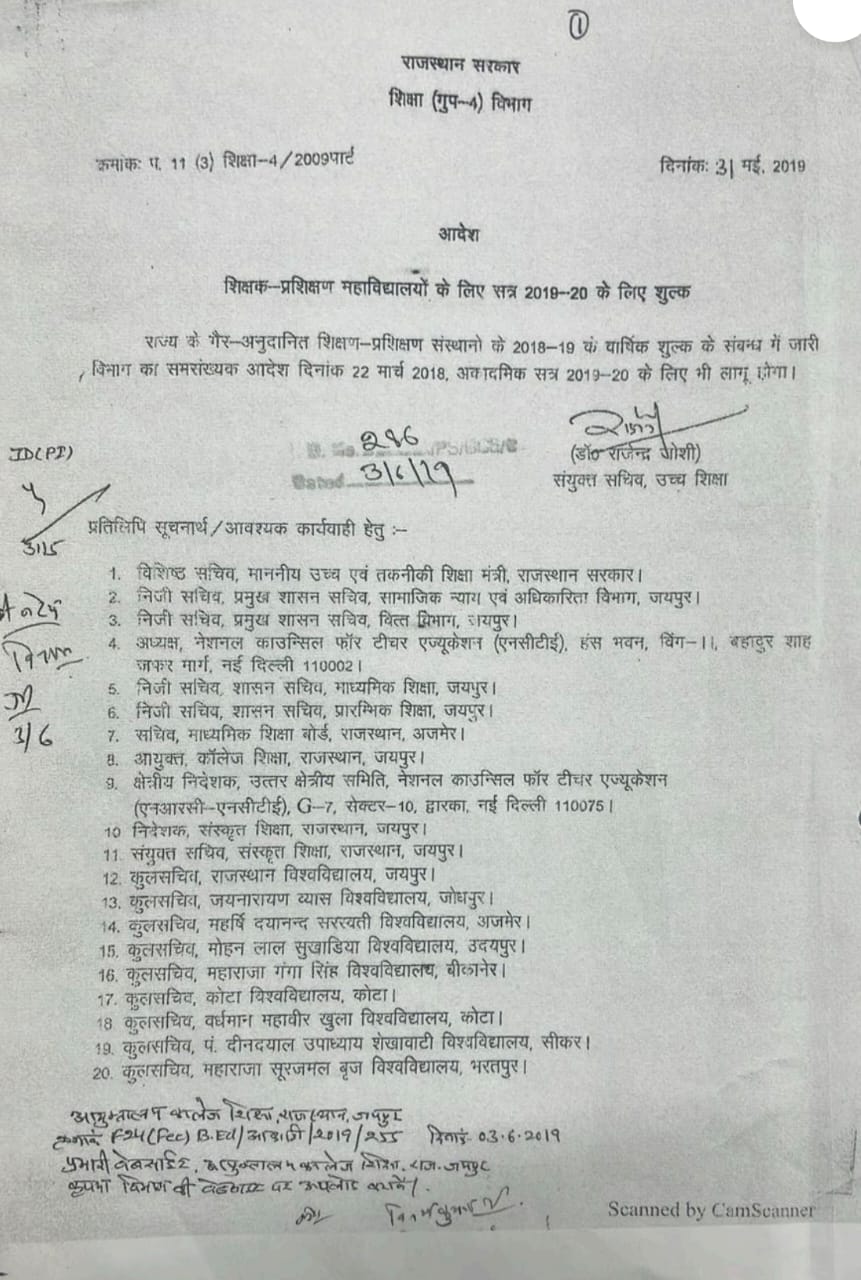 1
राजस्थान सरकार
शिक्षा (गुप-4) विभाग
क्रमांकः प. 11 (3) शिक्षा-4/2009पार्ट
दिनांकः 31 मई, 2019
आदेश
शिक्षक-प्रशिक्षण महाविद्यालयों के लिए सत्र 2019-20 के लिए शुल्क
राज्य के गैर-अनुदानित शिक्षण-प्रशिक्षण संस्थानो के 2018-19 के वार्षिक शुल्क के संबन्ध में जारी
विभाग का समसंख्यक आदेश दिनांक 22 मार्च 2018, अकादमिक सत्र 2019-20 के लिए भी लागू होगा।
286
Dated 3/6/19
(डॉ० राजेन्द्र जोशी)
संयुक्त सचिव, उच्च शिक्षा
JD(PI)
31/5
3/6
प्रतिलिपि सूचनार्थ/आवश्यक कार्यवाही हेतु :-
1. विशिष्ठ सचिव, माननीय उच्च एवं तकनीकी शिक्षा मंत्री, राजस्थान सरकार।
2. निजी सचिव, प्रमुख शासन सचिव, सामाजिक न्याय एवं अधिकारिता विभाग, जयपुर।
3. निजी सचिव, प्रमुख शासन सचिव, वित्त विभाग, जयपुर।
4. अध्यक्ष, नेशनल काउन्सिल फॉर टीचर एज्यूकेशन (एनसीटीई), हंस भवन, विंग-।।, बहादुर शाह
जफर मार्ग, नई दिल्ली 110002।
5. निजी सचिव, शासन सचिव, माध्यमिक शिक्षा, जयपुर।
6. निजी सचिव, शासन सचिव, प्रारम्भिक शिक्षा, जयपुर।
7. सचिव, माध्यमिक शिक्षा बोर्ड, राजस्थान, अजमेर।
8. आयुक्त, कॉलेज शिक्षा, राजस्थान, जयपुर।
9. क्षेत्रीय निदेशक, उत्तर क्षेत्रीय समिति, नेशनल काउन्सिल फॉर टीचर एज्यूकेशन
(एनआरसी-एनसीटीई), G-7, सेक्टर-10, द्वारका, नई दिल्ली 110075।
10 निदेशक, संस्कृत शिक्षा, राजस्थान, जयपुर।
11. संयुक्त सचिव, संस्कृत शिक्षा, राजस्थान, जयपुर।
12. कुलसचिव, राजस्थान विश्वविद्यालय, जयपुर।
13. कुलसचिव, जयनारायण व्यास विश्वविद्यालय, जोधपुर।
14. कुलसचिव, महर्षि दयानन्द सरस्वती विश्वविद्यालय, अजमेर।
15. कुलसचिव, मोहन लाल सुखाडिया विश्वविद्यालय, उदयपुर।
16. कुलसचिव, महाराजा गंगा सिंह विश्वविद्यालय, बीकानेर।
17. कुलसचिव, कोटा विश्वविद्यालय, कोटा।
18 कुलसचिव, वर्धमान महावीर खुला विश्वविद्यालय, कोटा।
19. कुलसचिव, पं. दीनदयाल उपाध्याय शेखावाटी विश्वविद्यालय, सीकर।
20. कुलसचिव, महाराजा सूरजमल बृज विश्वविद्यालय, भरतपुर।
आयुक्तालय कॉलेज शिक्षा, राजस्थान, जयपुर
क्रमांक F24(Fee) B.Ed/आकाशि/2019/255 दिनांक 03.6.2019
प्रभारी वेबसाईट, आयुक्तालय कॉलेज शिक्षा, राज. जयपुर
कृपया विभाग की वेबसाइट पर अपलोड करावें।
Scanned by CamScanner